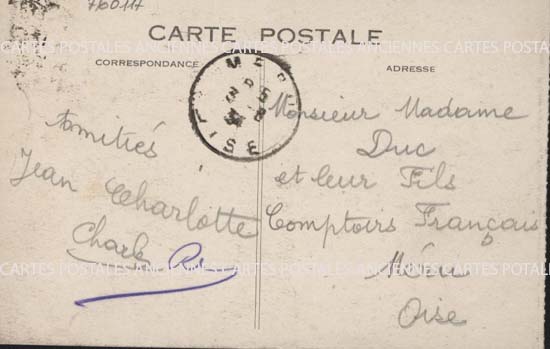 760117
CARTE POSTALE
CARTES POSTALES ANCIENNES CARTES POSTALES ANCIENNES CARTES POSTALES
CORRESPONDANCE
ADRESSE
OISE
Amitiés
Jean Charlotte
Monsieur Madame
Duc
et leur Fils
Comptoirs Français
Méru
Oise
CARTES POSTALES ANCIENNES CARTES POSTALES ANCIENNES CARTES POTALES